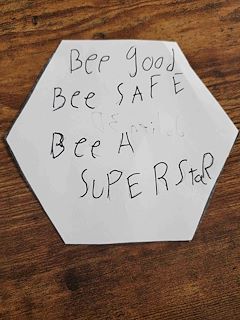 Bee good
Bee SAFE
Bee A
SUPERStaR